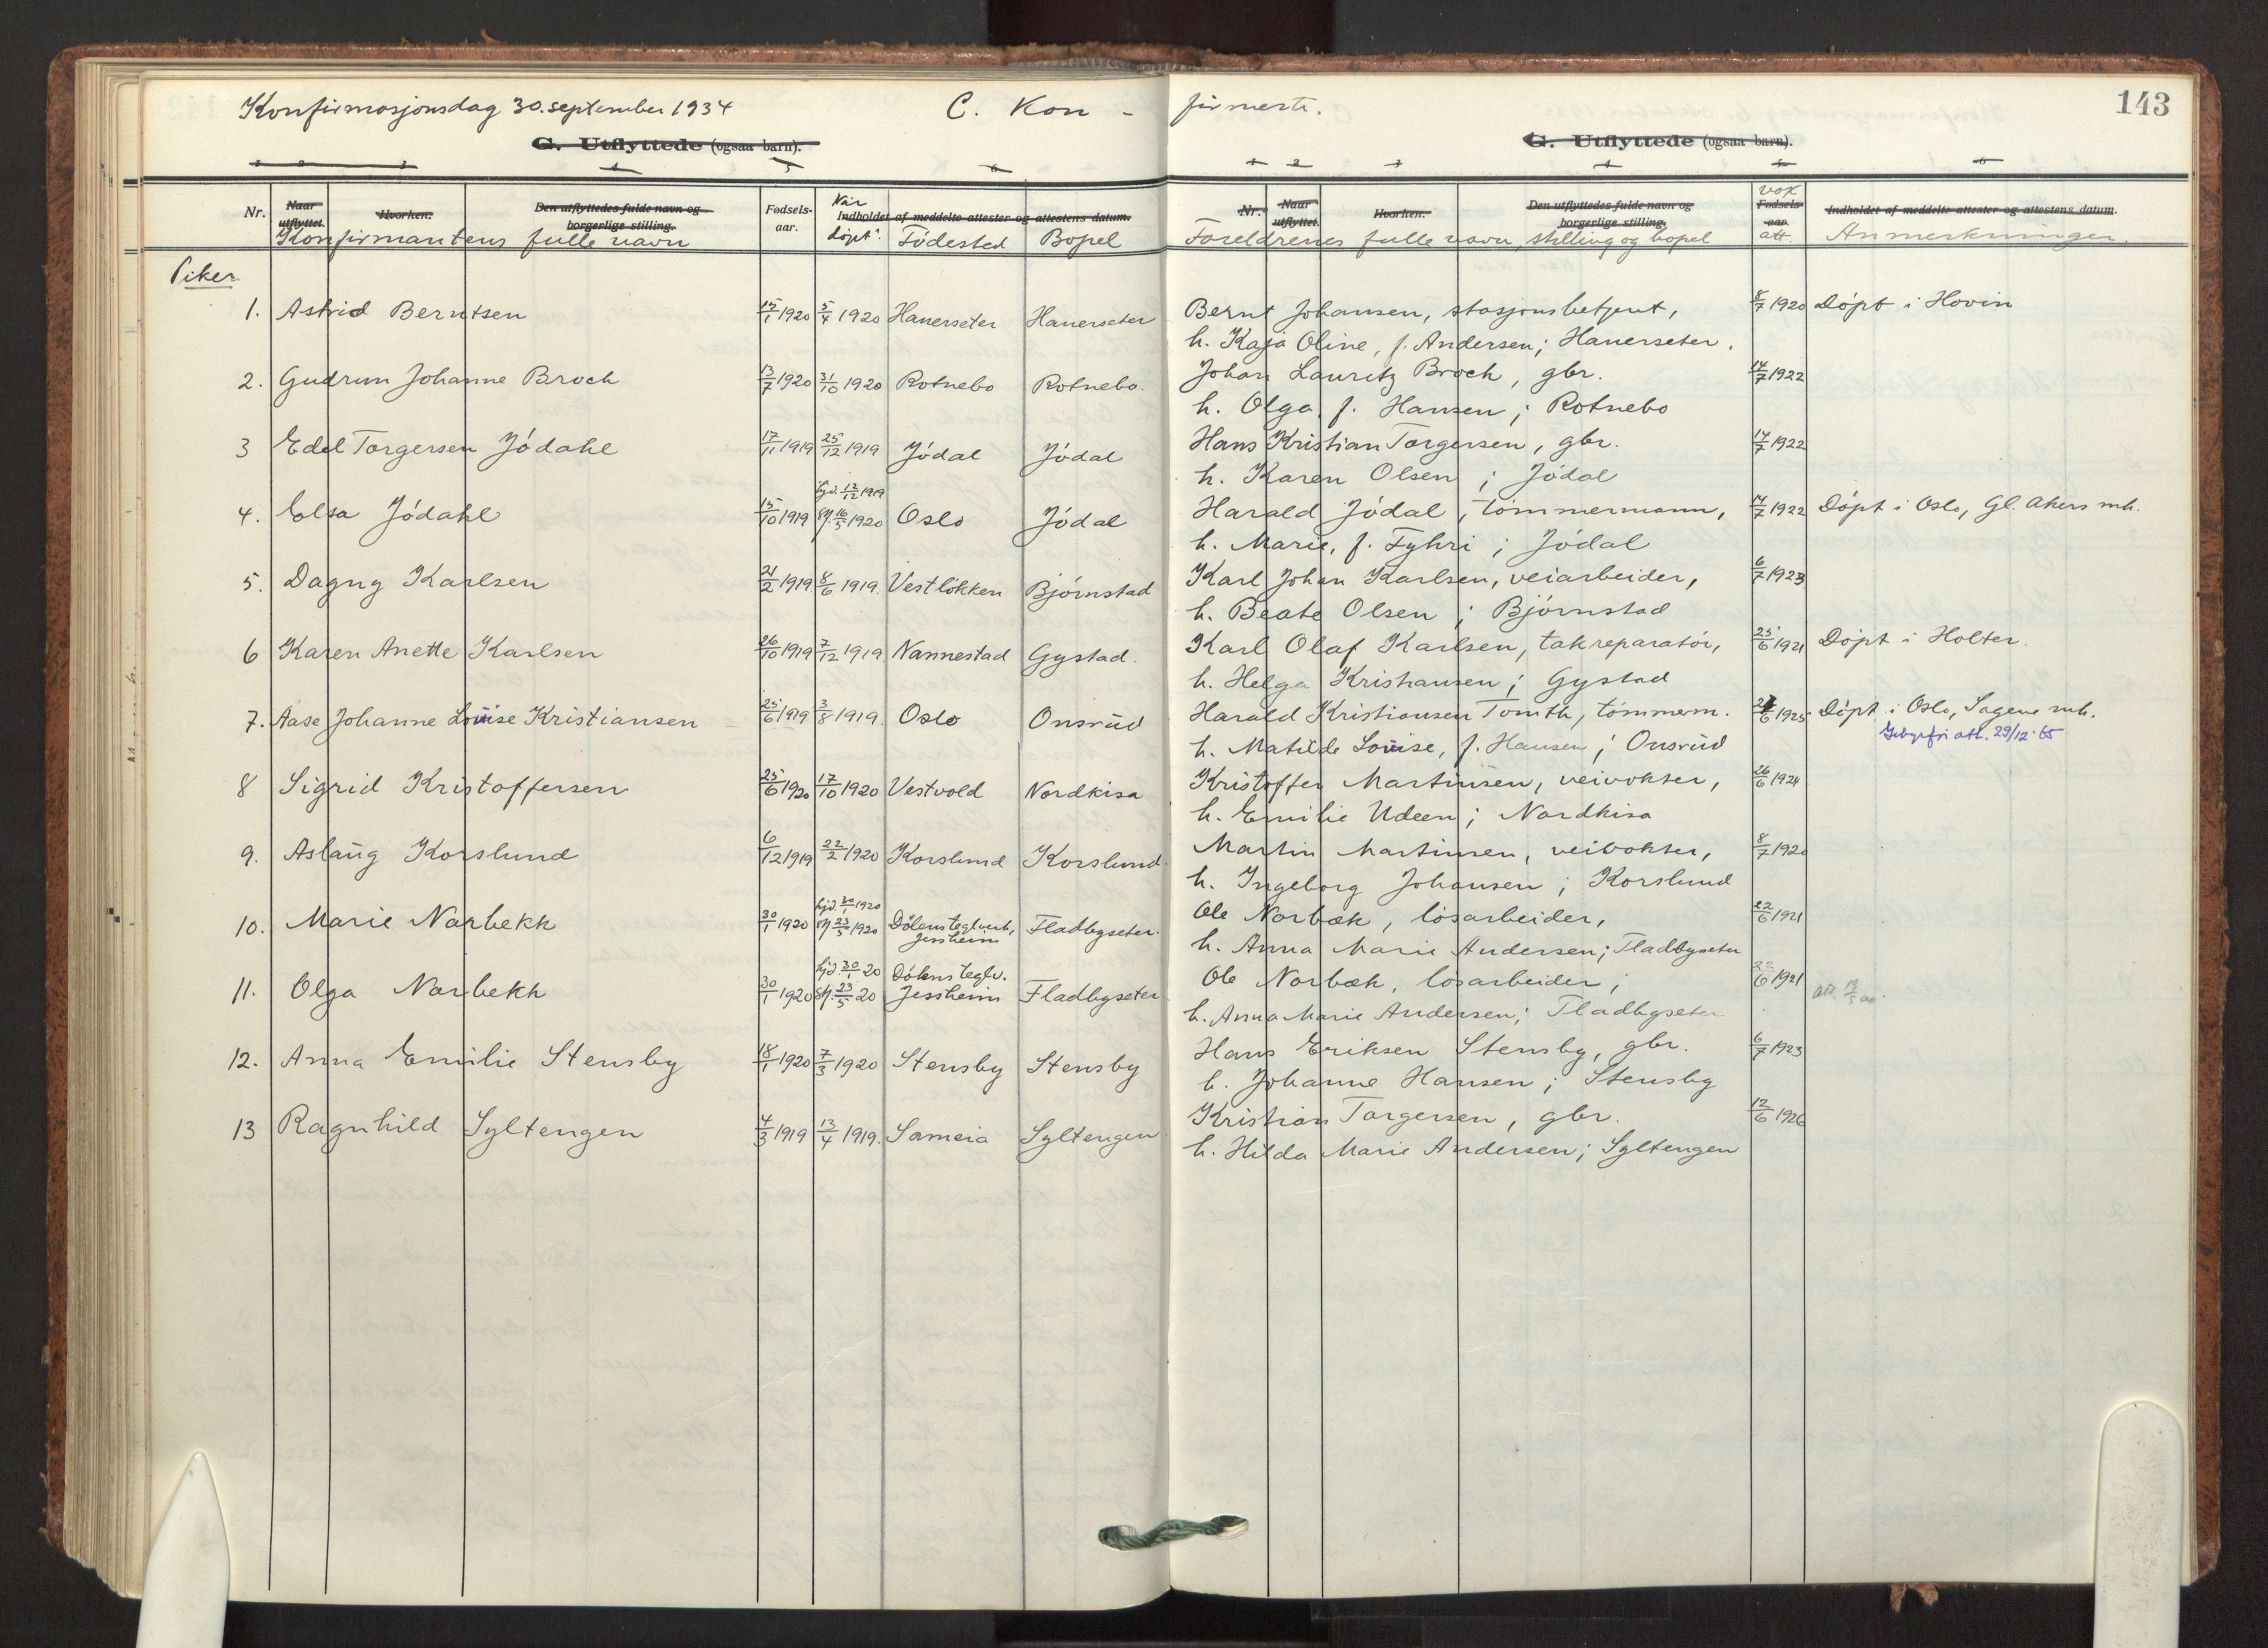 Konfirmasjonsdag 30. september 1934 C. Kon - firmerte. 143
G. Utflyttede (ogsaa barn). G. Utflyttede (ogsaa barn).
1 2 3 4 5 6 1 2 3 4 5 6
Nr. Naar utflyttet. Hvorhen. Den utflyttedes fulde navn og borgerlige stilling. Fødsels-aar. Indholdet af meddelte attester og attestens datum. Nr. Naar utflyttet. Hvorhen. Den utflyttedes fulde navn og borgerlige stilling. Fødsels-aar. Indholdet af meddelte attester og attestens datum.
Konfirmantens fulle navn Når døpt. Fødested Bopel Foreldrenes fulle navn, stilling og bopel vax att. Anmerkninger.
Piker
1. Astrid Berntsen 15/1 1920 5/4 1920 Hauerseter Hauerseter Bernt Johansen, stasjonsbetjent, 8/7 1920 Døpt i Hovin
h. Kaja Oline, f. Andersen; Hauerseter.
2. Gudrun Johanne Broch 13/7 1920 31/10 1920 Rotnebo Rotnebo. Johan Lauritz Broch, gbr. 14/7 1922
h. Olga, f. Hansen; Rotnebo
3 Edel Torgersen Jódahl 17/11 1919 25/12 1919 Jódal Jódal Hans Kristian Torgersen, gbr. 14/7 1922
h. Karen Olsen; Jódal
4. Elsa Jódahl 15/10 1919 hjd. 12/12 1919 st. 16/5 1920 Oslo Jódal Harald Jódal, tømmermann, 14/7 1922 Døpt i Oslo, Gl. Akers mh.
h. Marie, f. Fyhri; Jódal
5. Dagny Karlsen 21/2 1919 8/6 1919. Vestløkken Bjørnstad Karl Johan Karlsen, veiarbeider, 6/7 1923
h. Beate Olsen; Bjørnstad
6 Karen Anette Karlsen 26/10 1919 7/12 1919 Nannestad Gystad. Karl Olaf Karlsen, takreparatør, 25/6 1921 Døpt i Holter.
h. Helga Kristiansen; Gystad
7. Aase Johanne Louise Kristiansen 25/6 1919 3/8 1919. Oslo Onsrud Harald Kristiansen Tomth, tømmerm. 1925 Døpt i Oslo, Sagene mh.
h. Matilde Louise, f. Hansen; Onsrud Gebyrfri att. 29/12-65
8 Sigrid Kristoffersen 25/6 1920 17/10 1920 Vestvold Nordkisa Kristoffer Martinsen, veivokter, 26/6 1924
h. Emilie Udeen; Nordkisa
9. Aslaug Korslund 6/12 1919 22/2 1920 Korslund Korslund. Martin Martinsen, veivokter, 8/7 1920
h. Ingeborg Johansen; Korslund
10. Marie Norbekk 30/1 1920 hjd. 30/1 1920 st. 23/5 1920 Dølens teglverk, Jessheim Fladbyseter. Ole Norbæk, løsarbeider, 22/6 1921
h. Anna Marie Andersen; Fladbyseter
11. Olga Norbekk 30/1 1920 hjd. 30/1 20 st. 23/5 20 Dølens teglv. Jessheim Fladbyseter Ole Norbæk, løsarbeider; 22/6 1921
h. Anna Marie Andersen; Fladbyseter
12. Anna Emilie Stensby 18/1 1920 7/3 1920 Stensby Stensby Hans Eriksen Stensby, gbr. 6/7 1923
h. Johanne Hansen; Stensby
13 Ragnhild Syltengen 4/3 1919 13/4 1919. Sameia Syltengen Kristian Torgersen, gbr. 12/6 1926
h. Hilda Marie Andersen; Syltengen